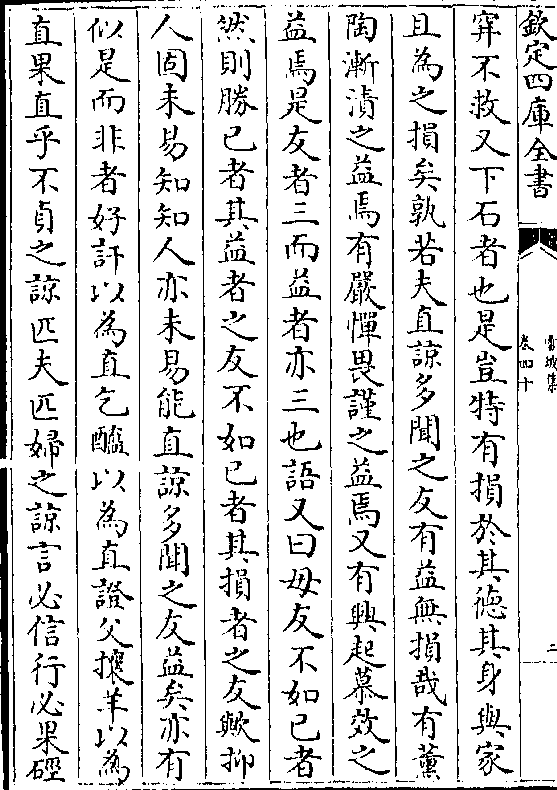 欽定四庫全書
卷四十
二
穽不救又下石者也是豈特有損於其德其身與家
且為之損矣孰若夫直諒多聞之友有益無損哉有薫
陶漸漬之益焉有嚴憚畏謹之益焉又有興起慕效之
益焉是友者三而益者亦三也語又曰毋友不如己者
然則勝己者其益者之友不如己者其損者之友歟抑
人固未易知知人亦未易能直諒多聞之友益矣亦有
似是而非者好訐以為直乞醯以為直證父攘羊以為
直果直乎不貞之諒匹夫匹婦之諒言必信行必果硜